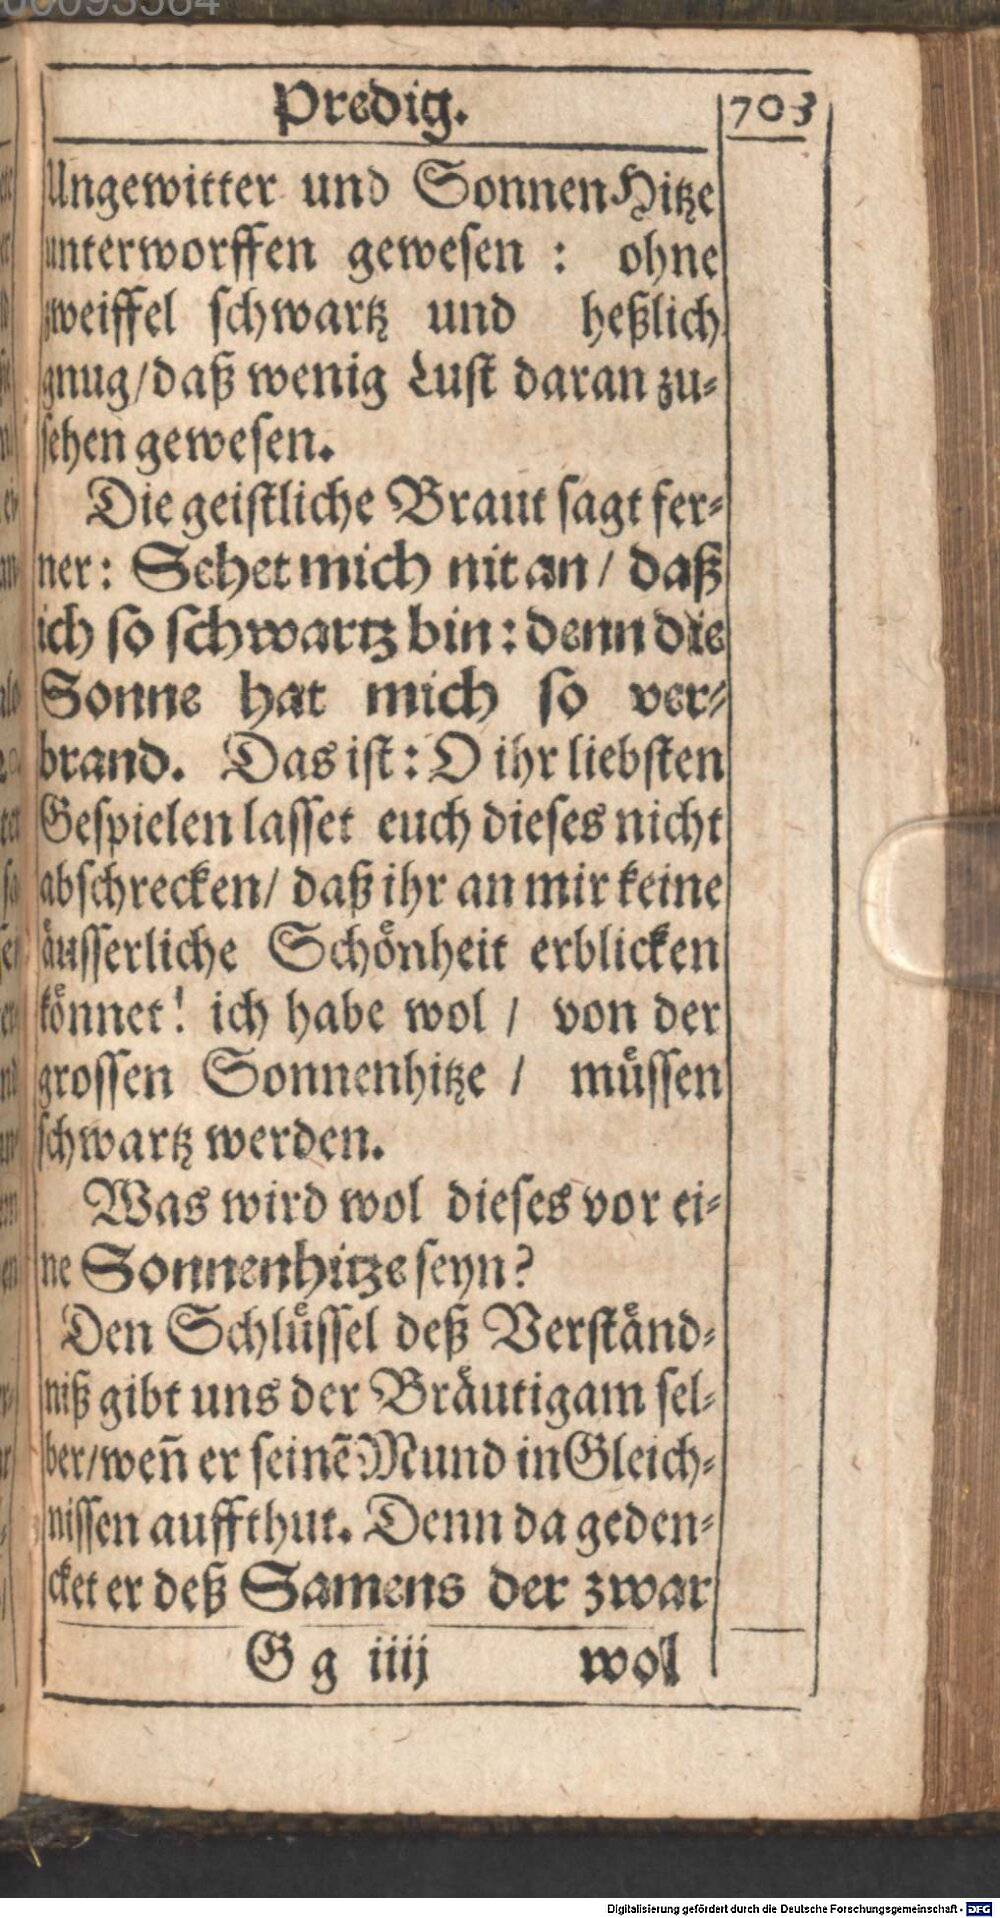 Predig.
703
Ungewitter und SonnenHitze
unterworffen gewesen : ohne
zweiffel schwartz und heßlich
gnug/daß wenig Lust daran zu-
sehen gewesen.
Die geistliche Braut sagt fer-
ner: Sehet mich nit an / daß
ich so schwartz bin: denn die
Sonne hat mich so ver-
brand. Das ist: O ihr liebsten
Gespielen lasset euch dieses nicht
abschrecken/ daß ihr an mir keine
äusserliche Schönheit erblicken
könnet! ich habe wol / von der
grossen Sonnenhitze / müssen
schwartz werden.
Was wird wol dieses vor ei-
ne Sonnenhitze seyn?
Den Schlüssel deß Verständ-
niß gibt uns der Bräutigam sel-
ber/weñ er seinẽ Mund in Gleich-
nissen auffthut. Denn da geden-
cket er deß Samens der zwar
G g iiij wol
Digitalisierung gefördert durch die Deutsche Forschungsgemeinschaft - DFG